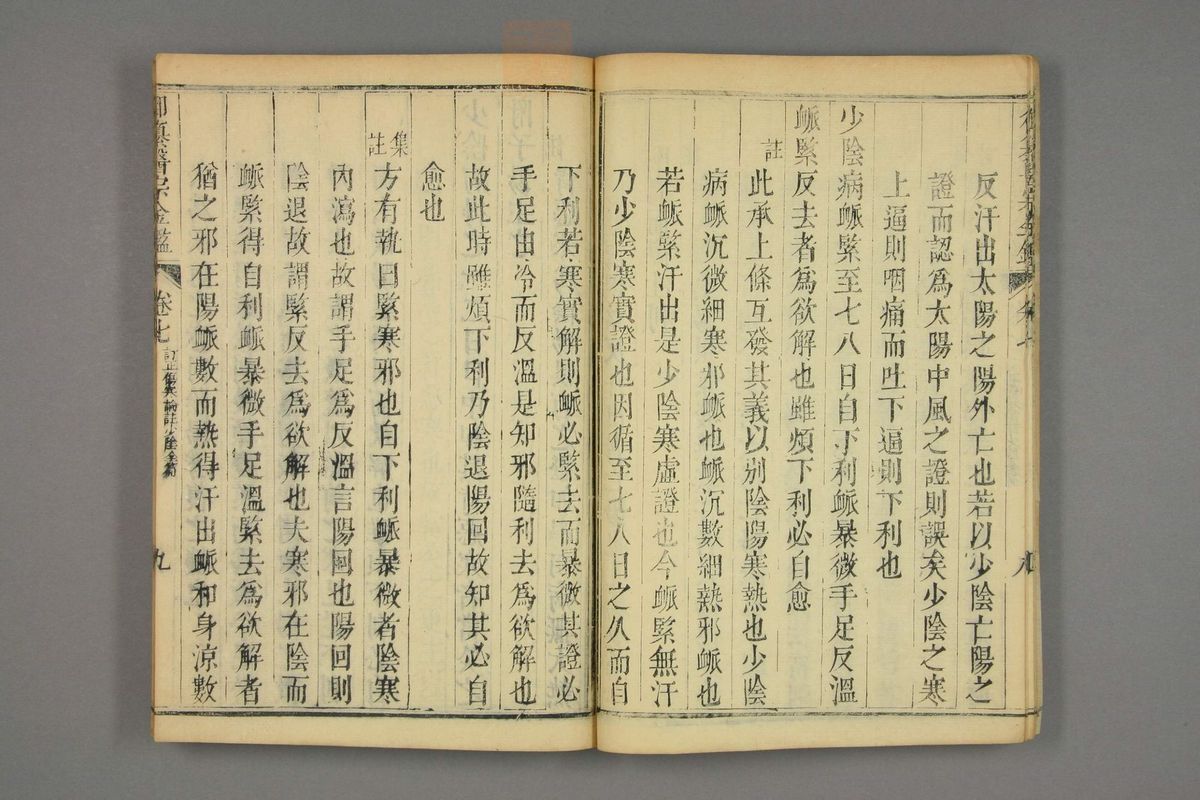 反汗出太陽之陽外亡也若以少陰亡陽之
證而認爲太陽中風之證則誤矣少陰之寒
上逼則咽痛而吐下逼則下利也
少陰病脈緊至七八日自下利脈暴微手足反溫
脈緊反去者爲欲解也雖煩下利必自愈
註
此承上條互發其義以別陰陽寒熱也少陰
病脈沉微細寒邪脈也脈沉數細熱邪脈也
若脈緊汗出是少陰寒虛證也今脈緊無汗
乃少陰寒實證也因循至七八日之久而自
下利若寒實解則脈必緊去而暴微其證必
手足由冷而反溫是知邪隨利去爲欲解也
故此時雖煩下利乃陰退陽回故知其必自
愈也
集註
方有執曰緊寒邪也自下利脈暴微者陰寒
內瀉也故謂手足爲反溫言陽回也陽回則
陰退故謂緊反去爲欲解也夫寒邪在陰而
脈緊得自利脈暴微手足溫緊去爲欲解者
猶之邪在陽脈數而熱得汗出脈和身涼數
御纂醫宗金鑑
卷七
訂正傷寒論註少陰全篇
九